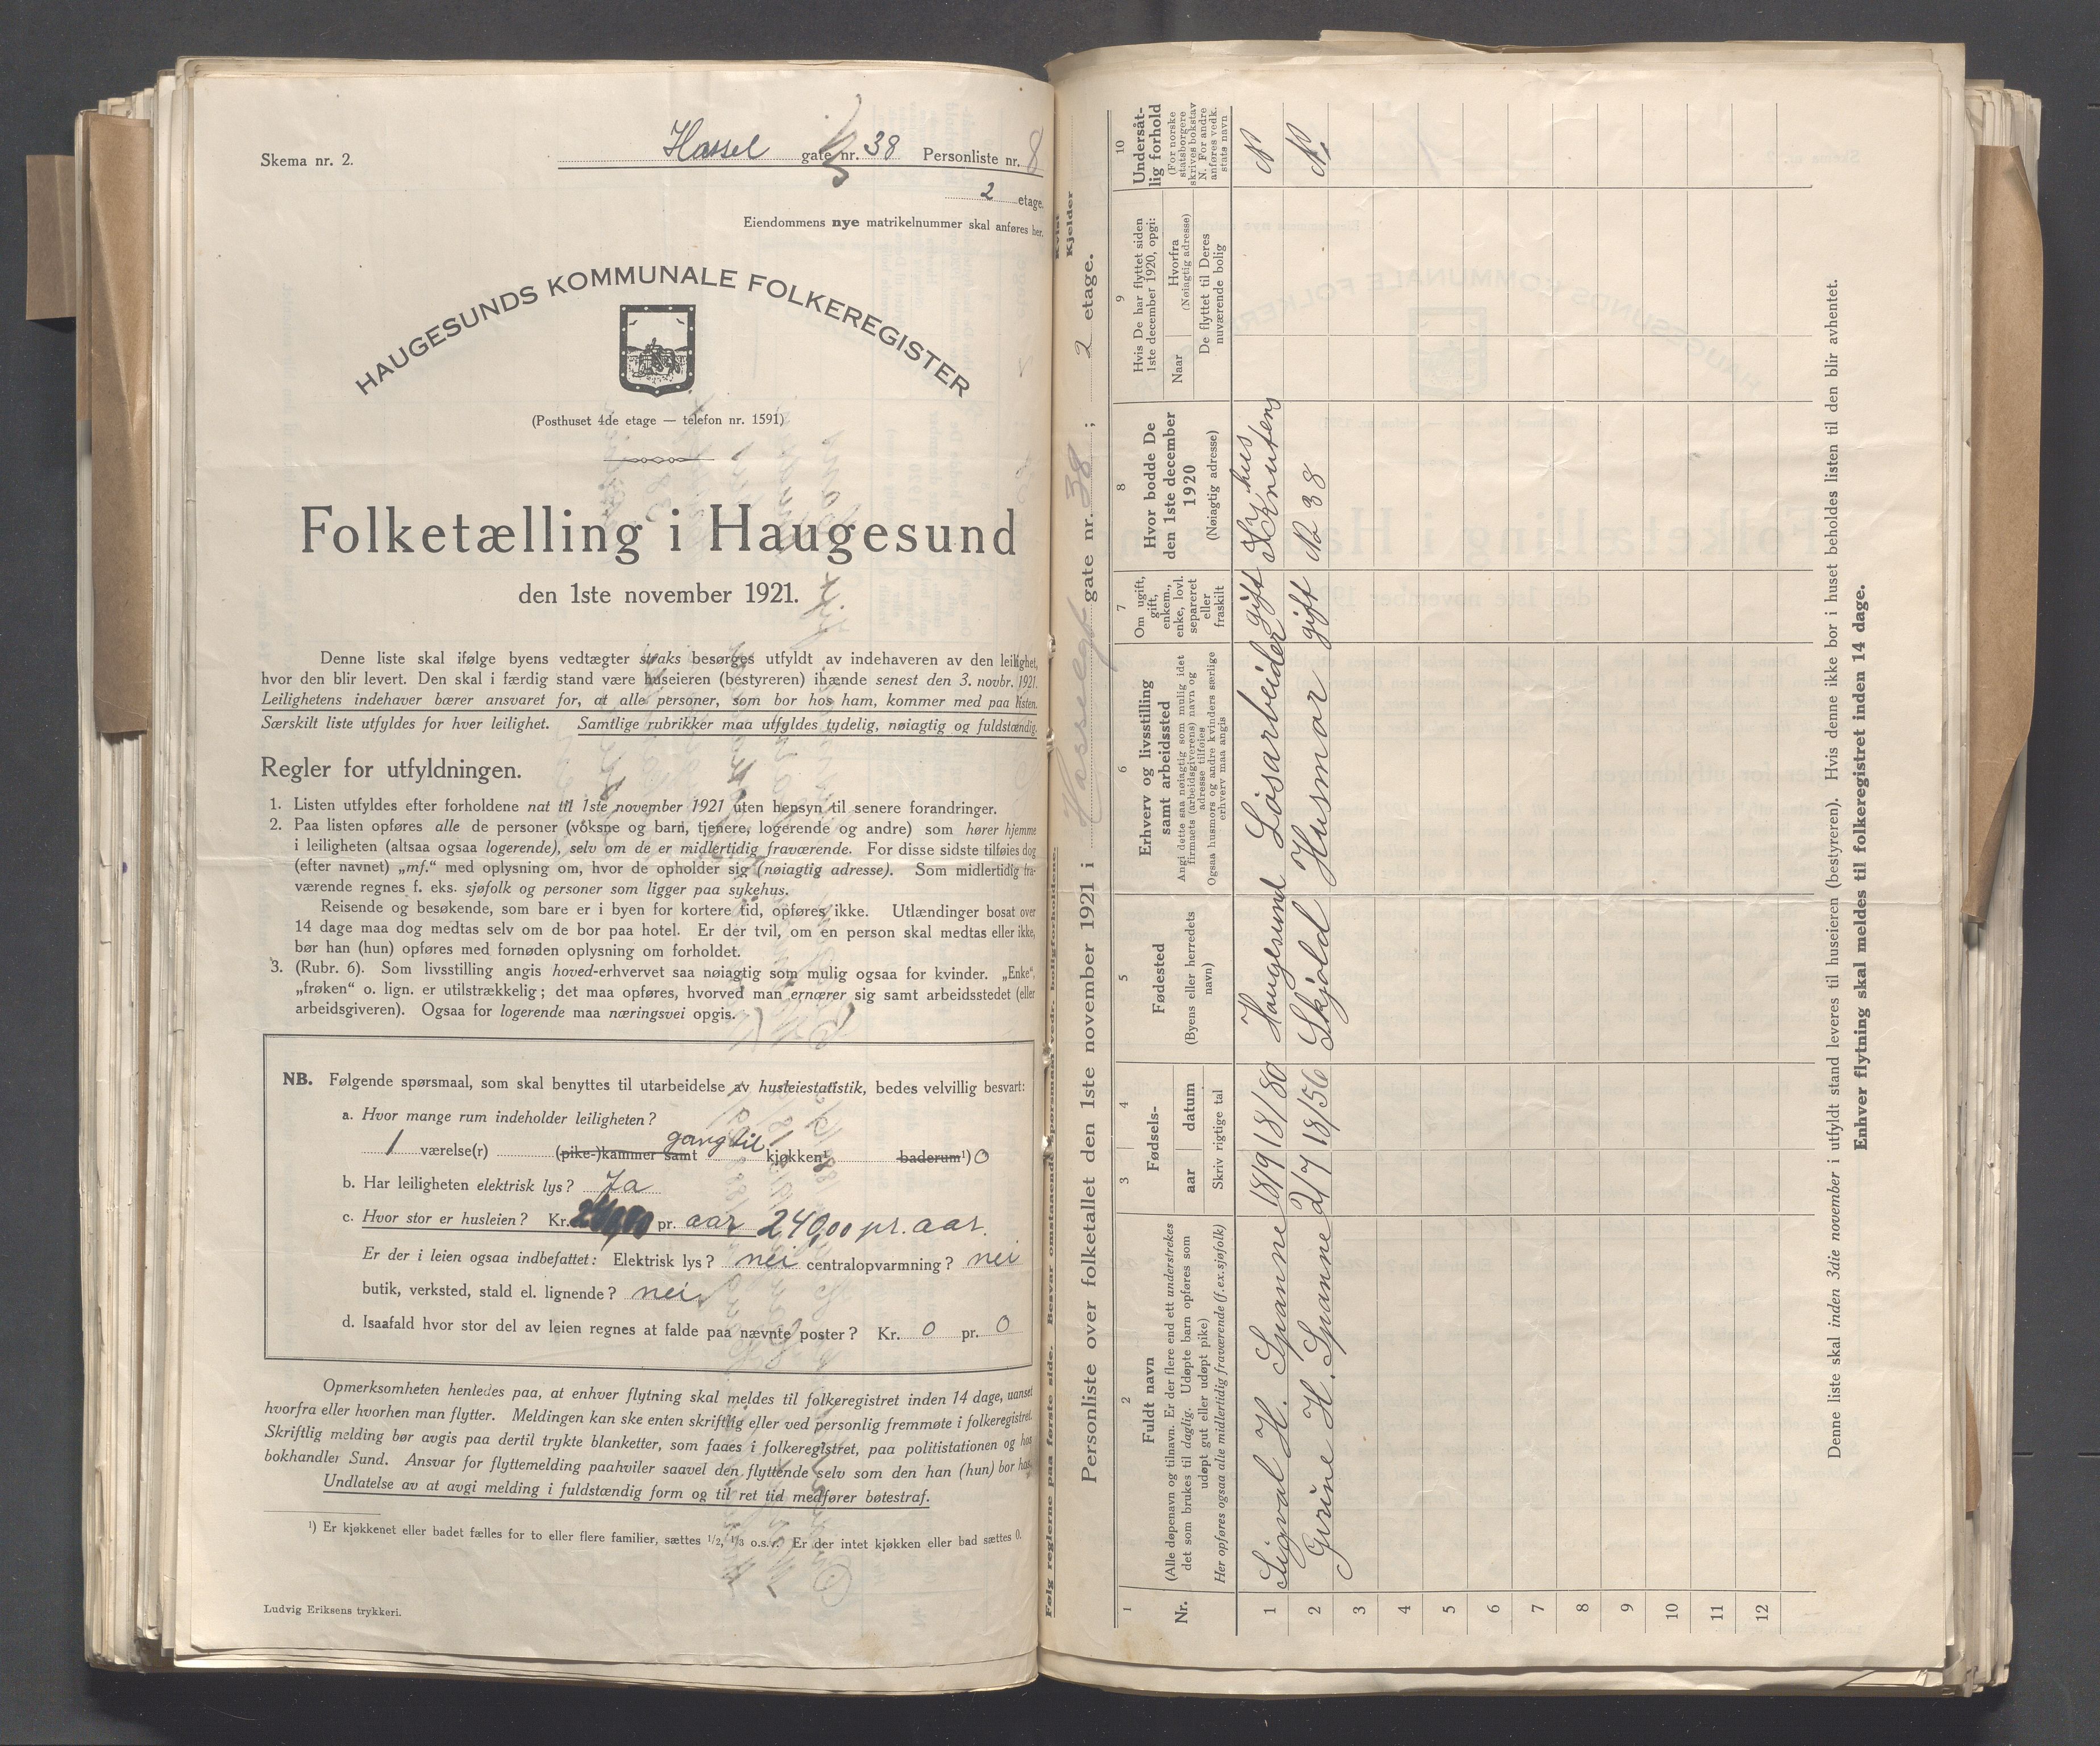 Skema nr. 2.
Hassel gate nr. 38 Personliste nr. 8
2 etage.
Eiendommens nye matrikelnummer skal anføres her.
HAUGESUNDS KOMMUNALE FOLKEREGISTER
(Posthuset 4de etage — telefon nr. 1591)
Folketælling i Haugesund
den 1ste november 1921.
Denne liste skal ifølge byens vedtægter straks besørges utfyldt av indehaveren av den leilighet,
hvor den blir levert. Den skal i færdig stand være huseieren (bestyreren) ihænde senest den 3. novbr. 1921.
Leilighetens indehaver bærer ansvaret for, at alle personer, som bor hos ham, kommer med paa listen.
Særskilt liste utfyldes for hver leilighet. Samtlige rubrikker maa utfyldes tydelig, nøiagtig og fuldstændig.
Regler for utfyldningen.
1. Listen utfyldes efter forholdene nat til 1ste november 1921 uten hensyn til senere forandringer.
2. Paa listen opføres alle de personer (voksne og barn, tjenere, logerende og andre) som hører hjemme
i leiligheten (altsaa ogsaa logerende), selv om de er midlertidig fraværende. For disse sidste tilføies dog
(efter navnet) „mf.“ med oplysning om, hvor de opholder sig (nøiagtig adresse). Som midlertidig fra-
værende regnes f. eks. sjøfolk og personer som ligger paa sykehus.
Reisende og besøkende, som bare er i byen for kortere tid, opføres ikke. Utlændinger bosat over
14 dage maa dog medtas selv om de bor paa hotel. Er der tvil, om en person skal medtas eller ikke,
bør han (hun) opføres med fornøden oplysning om forholdet.
3. (Rubr. 6). Som livsstilling angis hoved-erhvervet saa nøiagtig som mulig ogsaa for kvinder. „Enke“,
„frøken“ o. lign. er utilstrækkelig; det maa opføres, hvorved man ernærer sig samt arbeidsstedet (eller
arbeidsgiveren). Ogsaa for logerende maa næringsvei opgis.
NB. Følgende spørsmaal, som skal benyttes til utarbeidelse av husleiestatistik, bedes velvillig besvart:
a. Hvor mange rum indeholder leiligheten?
1 værelse(r) (pike-)kammer samt gang til kjøkken¹) baderum¹) 0
b. Har leiligheten elektrisk lys? Ja
c. Hvor stor er husleien? Kr. 240,00 pr. aar 240,00 pr. aar.
Er der i leien ogsaa indbefattet: Elektrisk lys? nei centralopvarmning? nei
butik, verksted, stald el. lignende? nei
d. Isaafald hvor stor del av leien regnes at falde paa nævnte poster? Kr. 0 pr. 0
Opmerksomheten henledes paa, at enhver flytning skal meldes til folkeregistret inden 14 dage, uanset
hvorfra eller hvorhen man flytter. Meldingen kan ske enten skriftlig eller ved personlig fremmøte i folkeregistret.
Skriftlig melding bør avgis paa dertil trykte blanketter, som faaes i folkeregistret, paa politistationen og hos
bokhandler Sund. Ansvar for flyttemelding paahviler saavel den flyttende selv som den han (hun) bor hos.
Undlatelse av at avgi melding i fuldstændig form og til ret tid medfører bøtestraf.
¹) Er kjøkkenet eller badet fælles for to eller flere familier, sættes 1/2, 1/3 o.s.v. Er der intet kjøkken eller bad sættes 0.
Ludvig Eriksens trykkeri.
Følg reglerne paa første side. Besvar omstaaende spørsmaal vedr. boligforholdene.
Kvist
Kjelder
Personliste over folketallet den 1ste november 1921 i Hasselgt gate nr. 38; 2 etage.
1 2 3 4 5 6 7 8 9 10
Nr.
Fuldt navn
(Alle døpenavn og tilnavn. Er der flere end ett understrekes
det som brukes til daglig. Udøpte barn opføres som
udøpt gut eller udøpt pike)
Her opføres ogsaa alle midlertidig fraværende (f.ex.sjøfolk)
Fødsels-
aar datum
Skriv rigtige tal
Fødested
(Byens eller herredets
navn)
Erhverv og livsstilling
samt arbeidssted
Angi dette saa nøiagtig som mulig idet
firmaets (arbeidsgiverens) navn og
adresse tilføies
Ogsaa husmors og andre kvinders særlige
erhverv maa angis
Om ugift,
gift,
enkem.,
enke, lovl.
separeret
eller
fraskilt
Hvor bodde De
den 1ste december
1920
(Nøiagtig adresse)
Hvis De har flyttet siden
1ste december 1920, opgi:
Naar
Hvorfra
(Nøiagtig adresse)
De flyttet til Deres
nuværende bolig
Undersåt-
lig forhold
(For norske
statsborgere
skrives bokstav
N. For andre
anføres vedk.
stats navn
1 Sigval H. Spanne 18/9 18/80 Haugesund Løsarbeider gift K Knutsens hus N
2 Gurine H. Spanne 2/7 18/56 Skjold Husmor gift No 38 N.
3
4
5
6
7
8
9
10
11
12
Denne liste skal inden 3die november i utfyldt stand leveres til huseieren (bestyreren). Hvis denne ikke bor i huset beholdes listen til den blir avhentet.
Enhver flytning skal meldes til folkeregistret inden 14 dage.